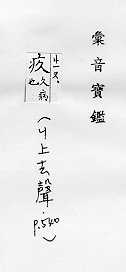 彙音寶鑑
ㄐㄧㄡˋ
疚 久病也
(ㄐ上去聲. P.540